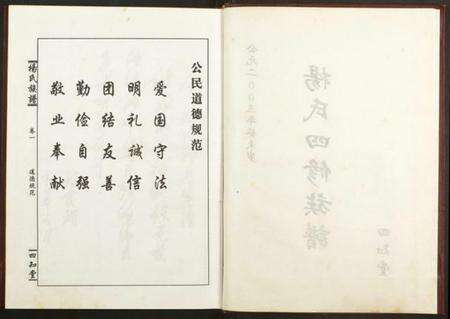 公民道德规范
爱国守法
明礼诚信
团结友善
勤俭自强
敬业奉献
楊氏族譜
卷一
道德规范
四知堂
楊氏四修族譜
四知堂